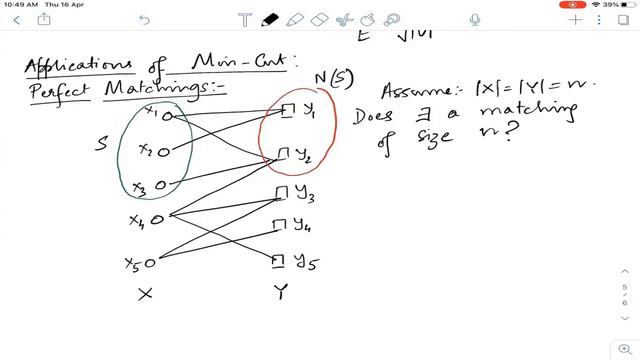 10:49 AM Thu 16 Apr
39%
Applications of Min-Cut:
Perfect Matchings:-
N(S)
Assume:- |X|=|Y|=n.
Does ∃ a matching
of size n?
S
x1
y1
x2
y2
x3
y3
x4
y4
x5
y5
X
Y
5
6